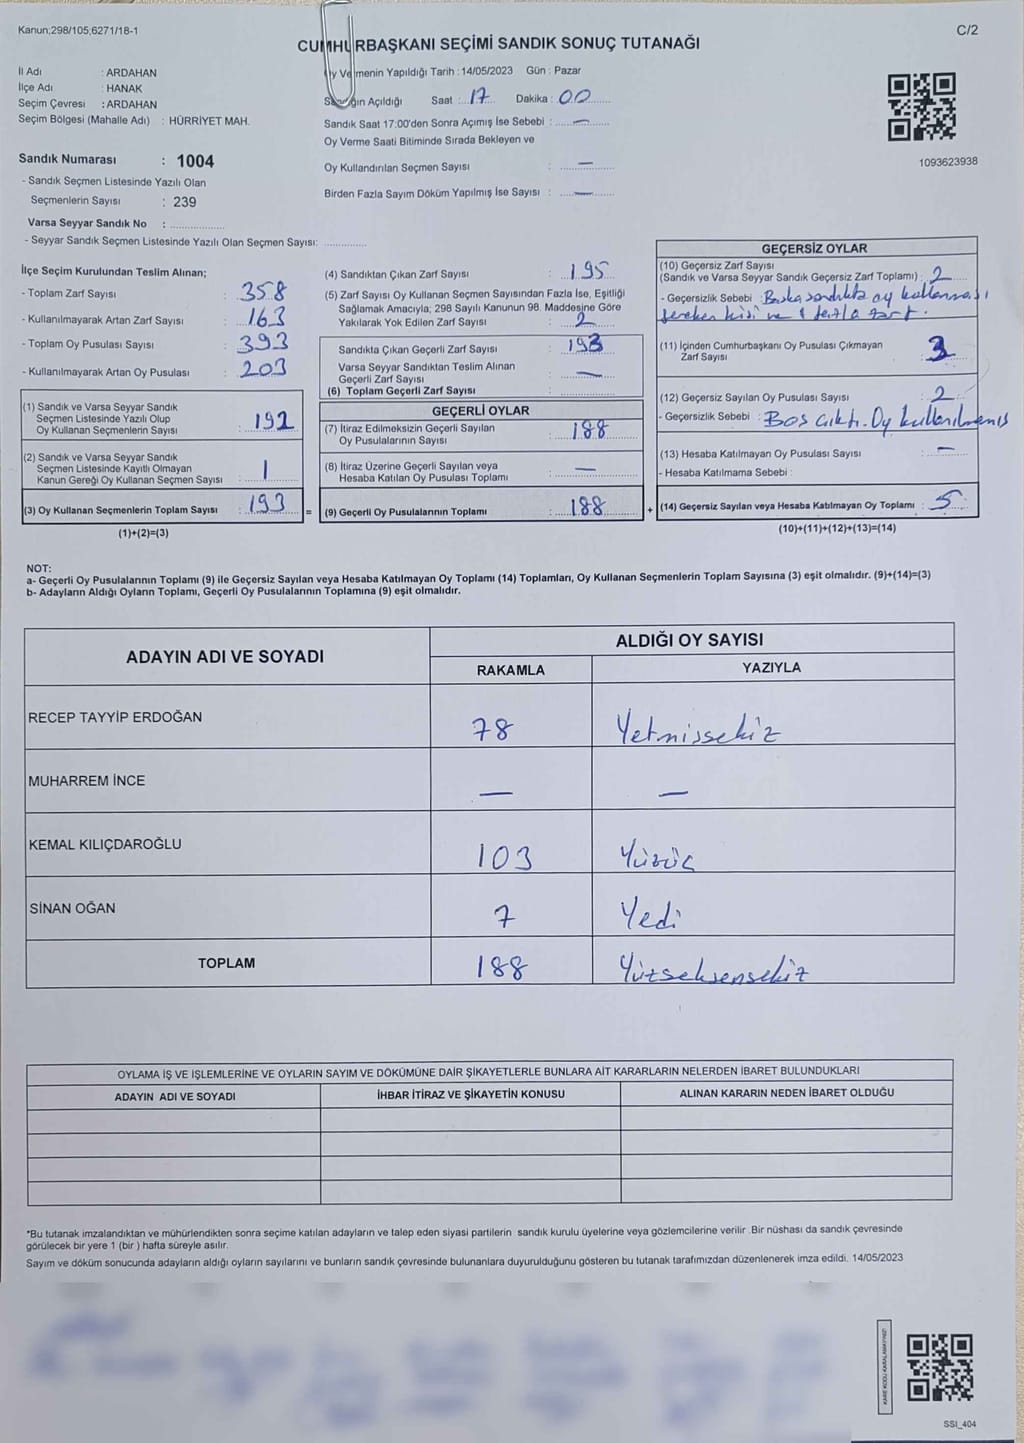 Kanun;298/105;6271/18-1
C/2
CUMHURBAŞKANI SEÇİMİ SANDIK SONUÇ TUTANAĞI
İl Adı : ARDAHAN
İlçe Adı : HANAK
Seçim Çevresi : ARDAHAN
Seçim Bölgesi (Mahalle Adı) : HÜRRİYET MAH.
Sandık Numarası : 1004
- Sandık Seçmen Listesinde Yazılı Olan
Seçmenlerin Sayısı : 239
Varsa Seyyar Sandık No :
- Seyyar Sandık Seçmen Listesinde Yazılı Olan Seçmen Sayısı:
Oy Vermenin Yapıldığı Tarih : 14/05/2023 Gün : Pazar
Sandığın Açıldığı Saat : 17 Dakika : 00
Sandık Saat 17:00'den Sonra Açımış İse Sebebi : —
Oy Verme Saati Bitiminde Sırada Bekleyen ve
Oy Kullandırılan Seçmen Sayısı : —
Birden Fazla Sayım Döküm Yapılmış İse Sayısı : —
1093623938
İlçe Seçim Kurulundan Teslim Alınan;
- Toplam Zarf Sayısı : 358
- Kullanılmayarak Artan Zarf Sayısı : 163
- Toplam Oy Pusulası Sayısı : 393
- Kullanılmayarak Artan Oy Pusulası : 203
(1) Sandık ve Varsa Seyyar Sandık
Seçmen Listesinde Yazılı Olup
Oy Kullanan Seçmenlerin Sayısı : 192
(2) Sandık ve Varsa Seyyar Sandık
Seçmen Listesinde Kayıtlı Olmayan
Kanun Gereği Oy Kullanan Seçmen Sayısı : 1
(3) Oy Kullanan Seçmenlerin Toplam Sayısı : 193 =
(1)+(2)=(3)
(4) Sandıktan Çıkan Zarf Sayısı : 195
(5) Zarf Sayısı Oy Kullanan Seçmen Sayısından Fazla İse, Eşitliği
Sağlamak Amacıyla; 298 Sayılı Kanunun 98. Maddesine Göre
Yakılarak Yok Edilen Zarf Sayısı : 2
Sandıkta Çıkan Geçerli Zarf Sayısı : 193
Varsa Seyyar Sandıktan Teslim Alınan
Geçerli Zarf Sayısı : —
(6) Toplam Geçerli Zarf Sayısı :
GEÇERLİ OYLAR
(7) İtiraz Edilmeksizin Geçerli Sayılan
Oy Pusulalarının Sayısı : 188
(8) İtiraz Üzerine Geçerli Sayılan veya
Hesaba Katılan Oy Pusulası Toplamı : —
(9) Geçerli Oy Pusulalarının Toplamı : 188 +
GEÇERSİZ OYLAR
(10) Geçersiz Zarf Sayısı
(Sandık ve Varsa Seyyar Sandık Geçersiz Zarf Toplamı) : 2
- Geçersizlik Sebebi : Başka sandıkta oy kullanması
gereken kişi ve 1 fazla zarf.
(11) İçinden Cumhurbaşkanı Oy Pusulası Çıkmayan
Zarf Sayısı : 3
(12) Geçersiz Sayılan Oy Pusulası Sayısı : 2
- Geçersizlik Sebebi : Boş çıktı. Oy kullanılmamış
(13) Hesaba Katılmayan Oy Pusulası Sayısı : —
- Hesaba Katılmama Sebebi :
(14) Geçersiz Sayılan veya Hesaba Katılmayan Oy Toplamı : 5
(10)+(11)+(12)+(13)=(14)
NOT:
a- Geçerli Oy Pusulalarının Toplamı (9) ile Geçersiz Sayılan veya Hesaba Katılmayan Oy Toplamı (14) Toplamları, Oy Kullanan Seçmenlerin Toplam Sayısına (3) eşit olmalıdır. (9)+(14)=(3)
b- Adayların Aldığı Oyların Toplamı, Geçerli Oy Pusulalarının Toplamına (9) eşit olmalıdır.
ADAYIN ADI VE SOYADI
ALDIĞI OY SAYISI
RAKAMLA YAZIYLA
RECEP TAYYİP ERDOĞAN 78 Yetmişsekiz
MUHARREM İNCE — —
KEMAL KILIÇDAROĞLU 103 Yüzüç
SİNAN OĞAN 7 Yedi
TOPLAM 188 Yüzseksensekiz
OYLAMA İŞ VE İŞLEMLERİNE VE OYLARIN SAYIM VE DÖKÜMÜNE DAİR ŞİKAYETLERLE BUNLARA AİT KARARLARIN NELERDEN İBARET BULUNDUKLARI
ADAYIN ADI VE SOYADI İHBAR İTİRAZ VE ŞİKAYETİN KONUSU ALINAN KARARIN NEDEN İBARET OLDUĞU
*Bu tutanak imzalandıktan ve mühürlendikten sonra seçime katılan adayların ve talep eden siyasi partilerin sandık kurulu üyelerine veya gözlemcilerine verilir .Bir nüshası da sandık çevresinde
görülecek bir yere 1 (bir ) hafta süreyle asılır.
Sayım ve döküm sonucunda adayların aldığı oyların sayılarını ve bunların sandık çevresinde bulunanlara duyurulduğunu gösteren bu tutanak tarafımızdan düzenlenerek imza edildi. 14/05/2023
KARE KODU KARALAMAYINIZ!
SSI_404